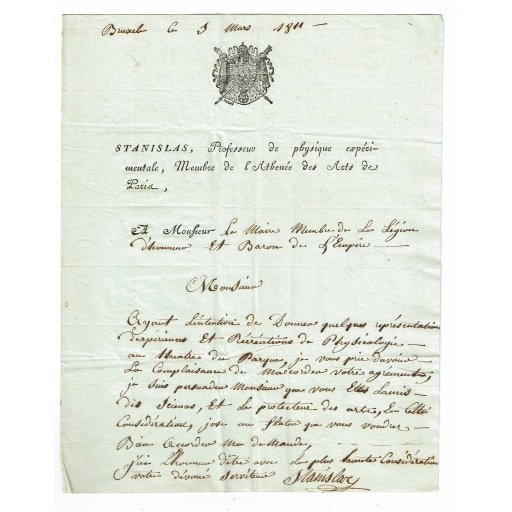 Bruxelle le 5 Mars 1811
STANISLAS, Professeur de physique expéri-
mentale, Membre de l'Athenée des Arts de
Paris,
A Monsieur Le Maire Membre de La Légion
d'honneur Et Baron de L'Empire
Monsieur
Ayant L'intention de Donner quelques représentations
d'expériences Et Récréations de Physicologie
au théatre du Parque, je vous prie d'avoir
La Complaisance de M'accorder votre agrément,
je suis persuadée Monsieur que vous Etes L'ami
des Sciences, Et le protecteur des arts, En Cette
Considération, jose me flater que vous voudrez
Bien accorder Ma demande,
j'ai L'honneur d'être avec La plus haute Considération
votre dévoué serviteur Stanislas